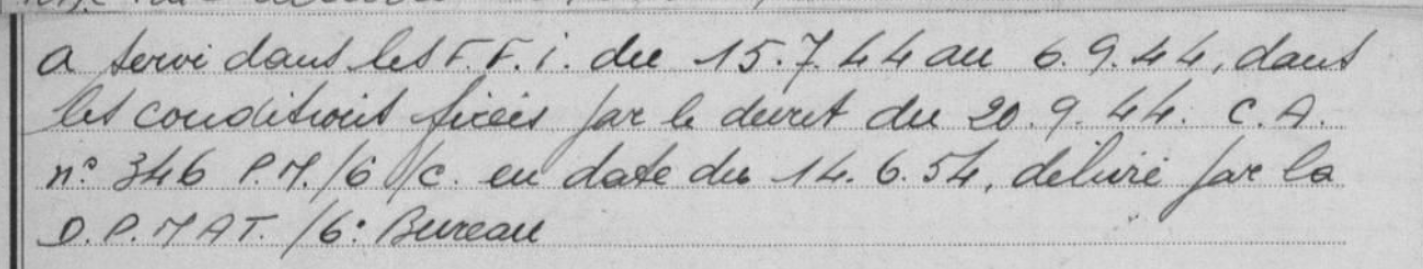 a servi dans les F.F.i. du 15.7.44 au 6.9.44, dans
les conditions fixées par le décret du 20.9.44. C.A.
n° 346 P.M./6 B/C. en date du 14.6.54, délivré par la
D.P.M.A.T. /6° Bureau